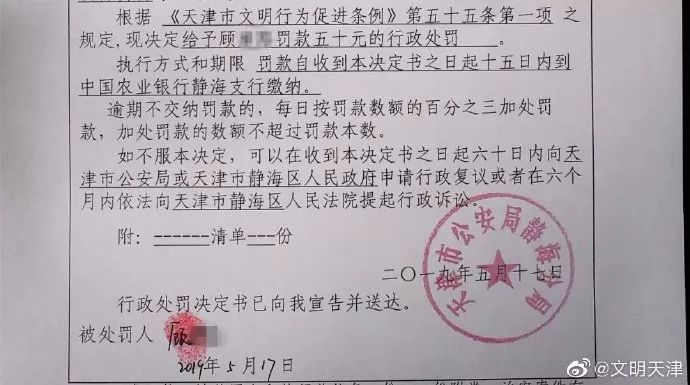 根据 《天津市文明行为促进条例》第五十五条第一项 之
规定,现决定给予顾 罚款五十元的行政处罚 。
执行方式和期限 罚款自收到本决定书之日起十五日内到
中国农业银行静海支行缴纳。
逾期不交纳罚款的，每日按罚款数额的百分之三加处罚
款，加处罚款的数额不超过罚款本数。
如不服本决定，可以在收到本决定书之日起六十日内向天
津市公安局或天津市静海区人民政府申请行政复议或者在六个
月内依法向天津市静海区人民法院提起行政诉讼。
附：------清单---份
天津市公安局静海分局
二〇一九年五月十七日
行政处罚决定书已向我宣告并送达。
被处罚人 顾
2019年5月17日
@文明天津